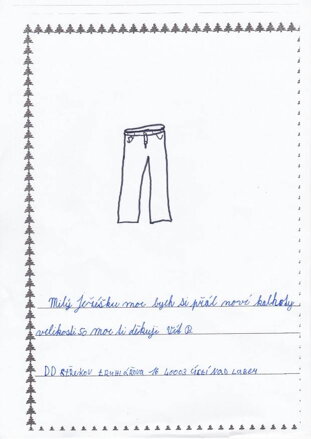 Milý Ježíšku moc bych si přál nové kalhoty
velikosti 50 moc ti děkuje Vít R
DD STŘEKOV TRUHLÁŘOVA 16 40003 ÚSTÍ NAD LABEM